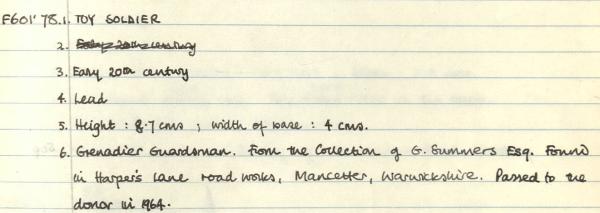 F601'78.1. TOY SOLDIER
2. Early 20th century
3. Early 20th century
4. Lead
5. Height : 8.7 cms ; width of base : 4 cms.
6. Grenadier Guardsman. From the Collection of G. Summers Esq. Found
in Harper's Lane road works, Mancetter, Warwickshire. Passed to the
donor in 1964.